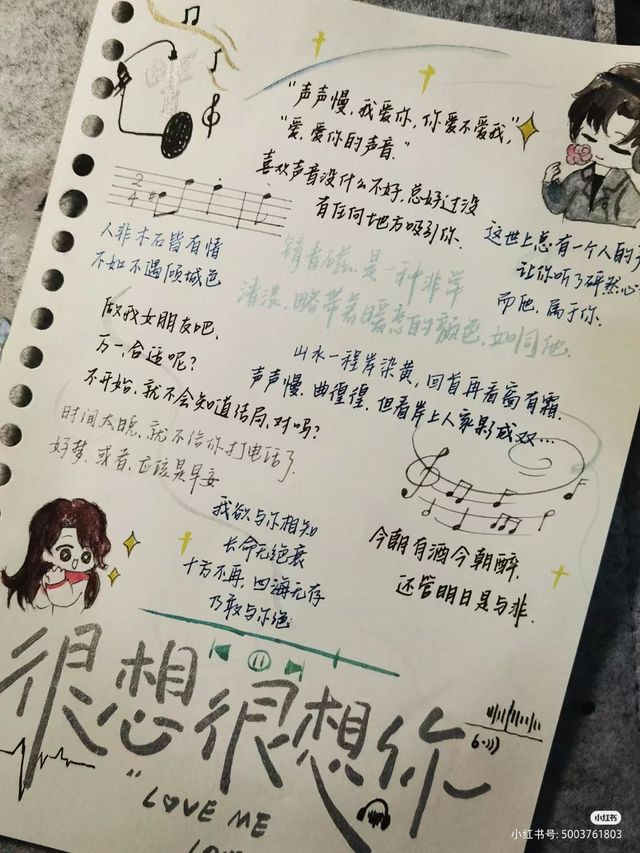 "声声慢，我爱你，你爱不爱我，"
"爱，爱你的声音."
喜欢声音没什么不好，总好过没
有任何地方吸引你.
2
4
人非木石皆有情
不如不遇倾城色
这世上总有一个人的
让你听了砰然心
而他，属于你.
锖青磁是一种非常
清淡、略带着暖意的颜色，如同他.
做我女朋友吧.
万一，合适呢？
不开始，就不会知道结局，对吗？
山水一程岸染黄，回首再看蜀有霜.
声声慢，曲徨徨，但看岸上人家影成双…
时间太晚，就不给你打电话了.
好梦，或者，应该是早安
我欲与你相知
长命无绝衰
十方不再，四海无存
乃敢与你绝
今朝有酒今朝醉，
还管明日是与非.
很想很想你
"LOVE ME
LOVE
小红书
小红书号: 5003761803